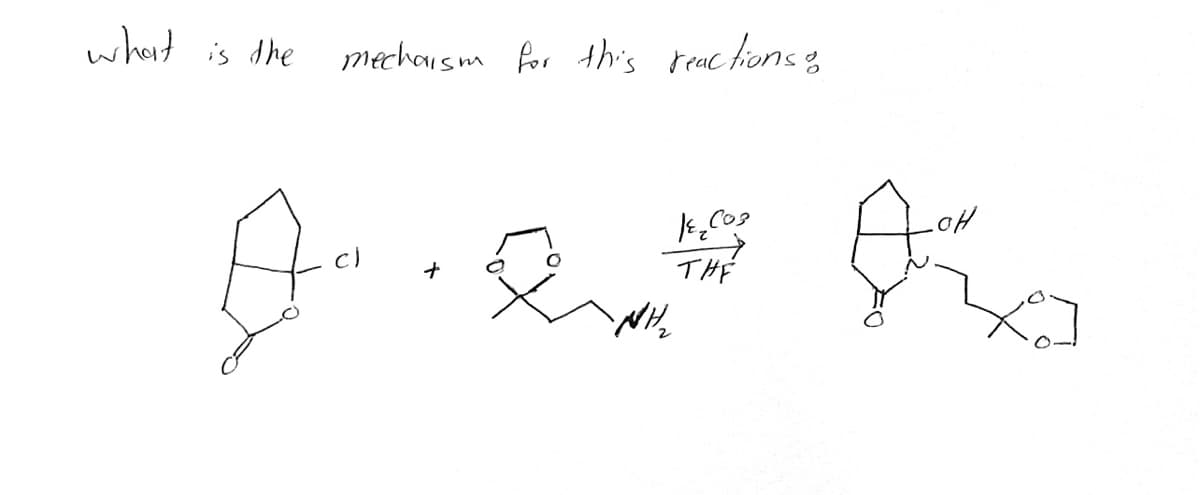 what is the mechaism for this reactions:
K₂CO₃
OH
Cl
+
O
O
THF
N
O
NH₂
O
O
O
O